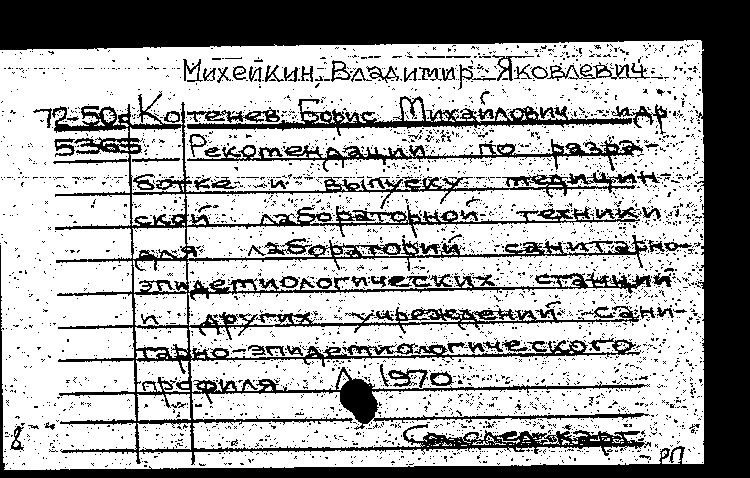 Михейкин, Владимир Яковлевич
72-50с Котенев Борис Михайлович и др
5365 Рекомендации по разра-
ботке и выпуску медицин-
ской лабораторной техники
для лабораторий санитарно-
эпидемиологических станций
и других учреждений сани-
тарно-эпидемиологического
профиля. Л 1970
См. след. карт.
8
РП